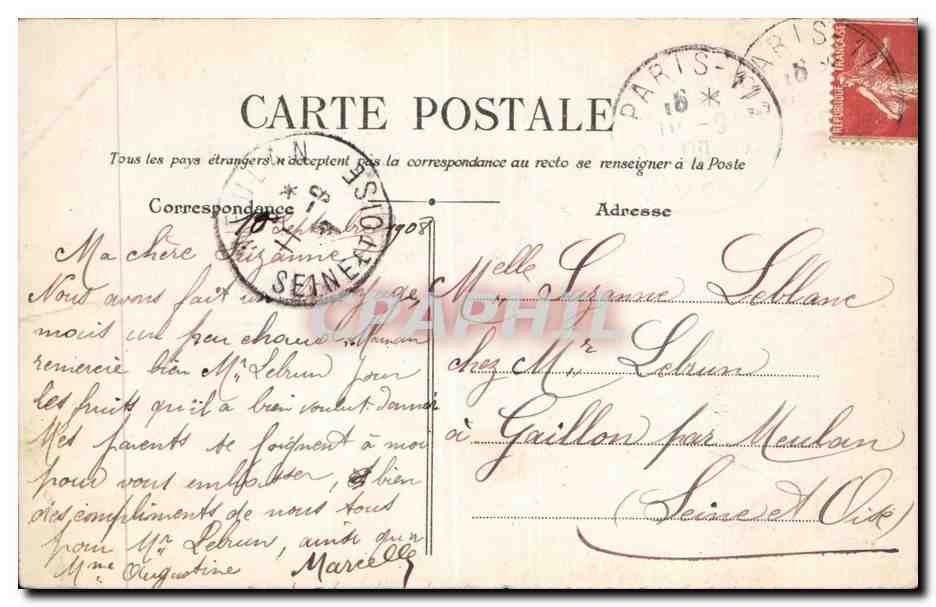 CARTE POSTALE
Tous les pays étrangers n'acceptent pas la correspondance au recto se renseigner à la Poste
Correspondance
Adresse
PARIS
RÉPUBLIQUE FRANÇAISE
SEINE ET OISE
CPARHIL
10 Septembre 1908
Ma chère Suzanne
Nous avons fait un
mais un peu chaud, Maman
remercie bien Mr. Lebrun pour
les fruits qu'il a bien voulut donner
Mes parents se joignent à moi
pour vous embrasser, bien
des compliments de nous tous
pour Mr Lebrun, ainsi qu'a
Mme Augustine Marcelle
Melle Suzanne Leblanc
chez Mr Lebrun
à Gaillon par Meulan
(Seine et Oise)